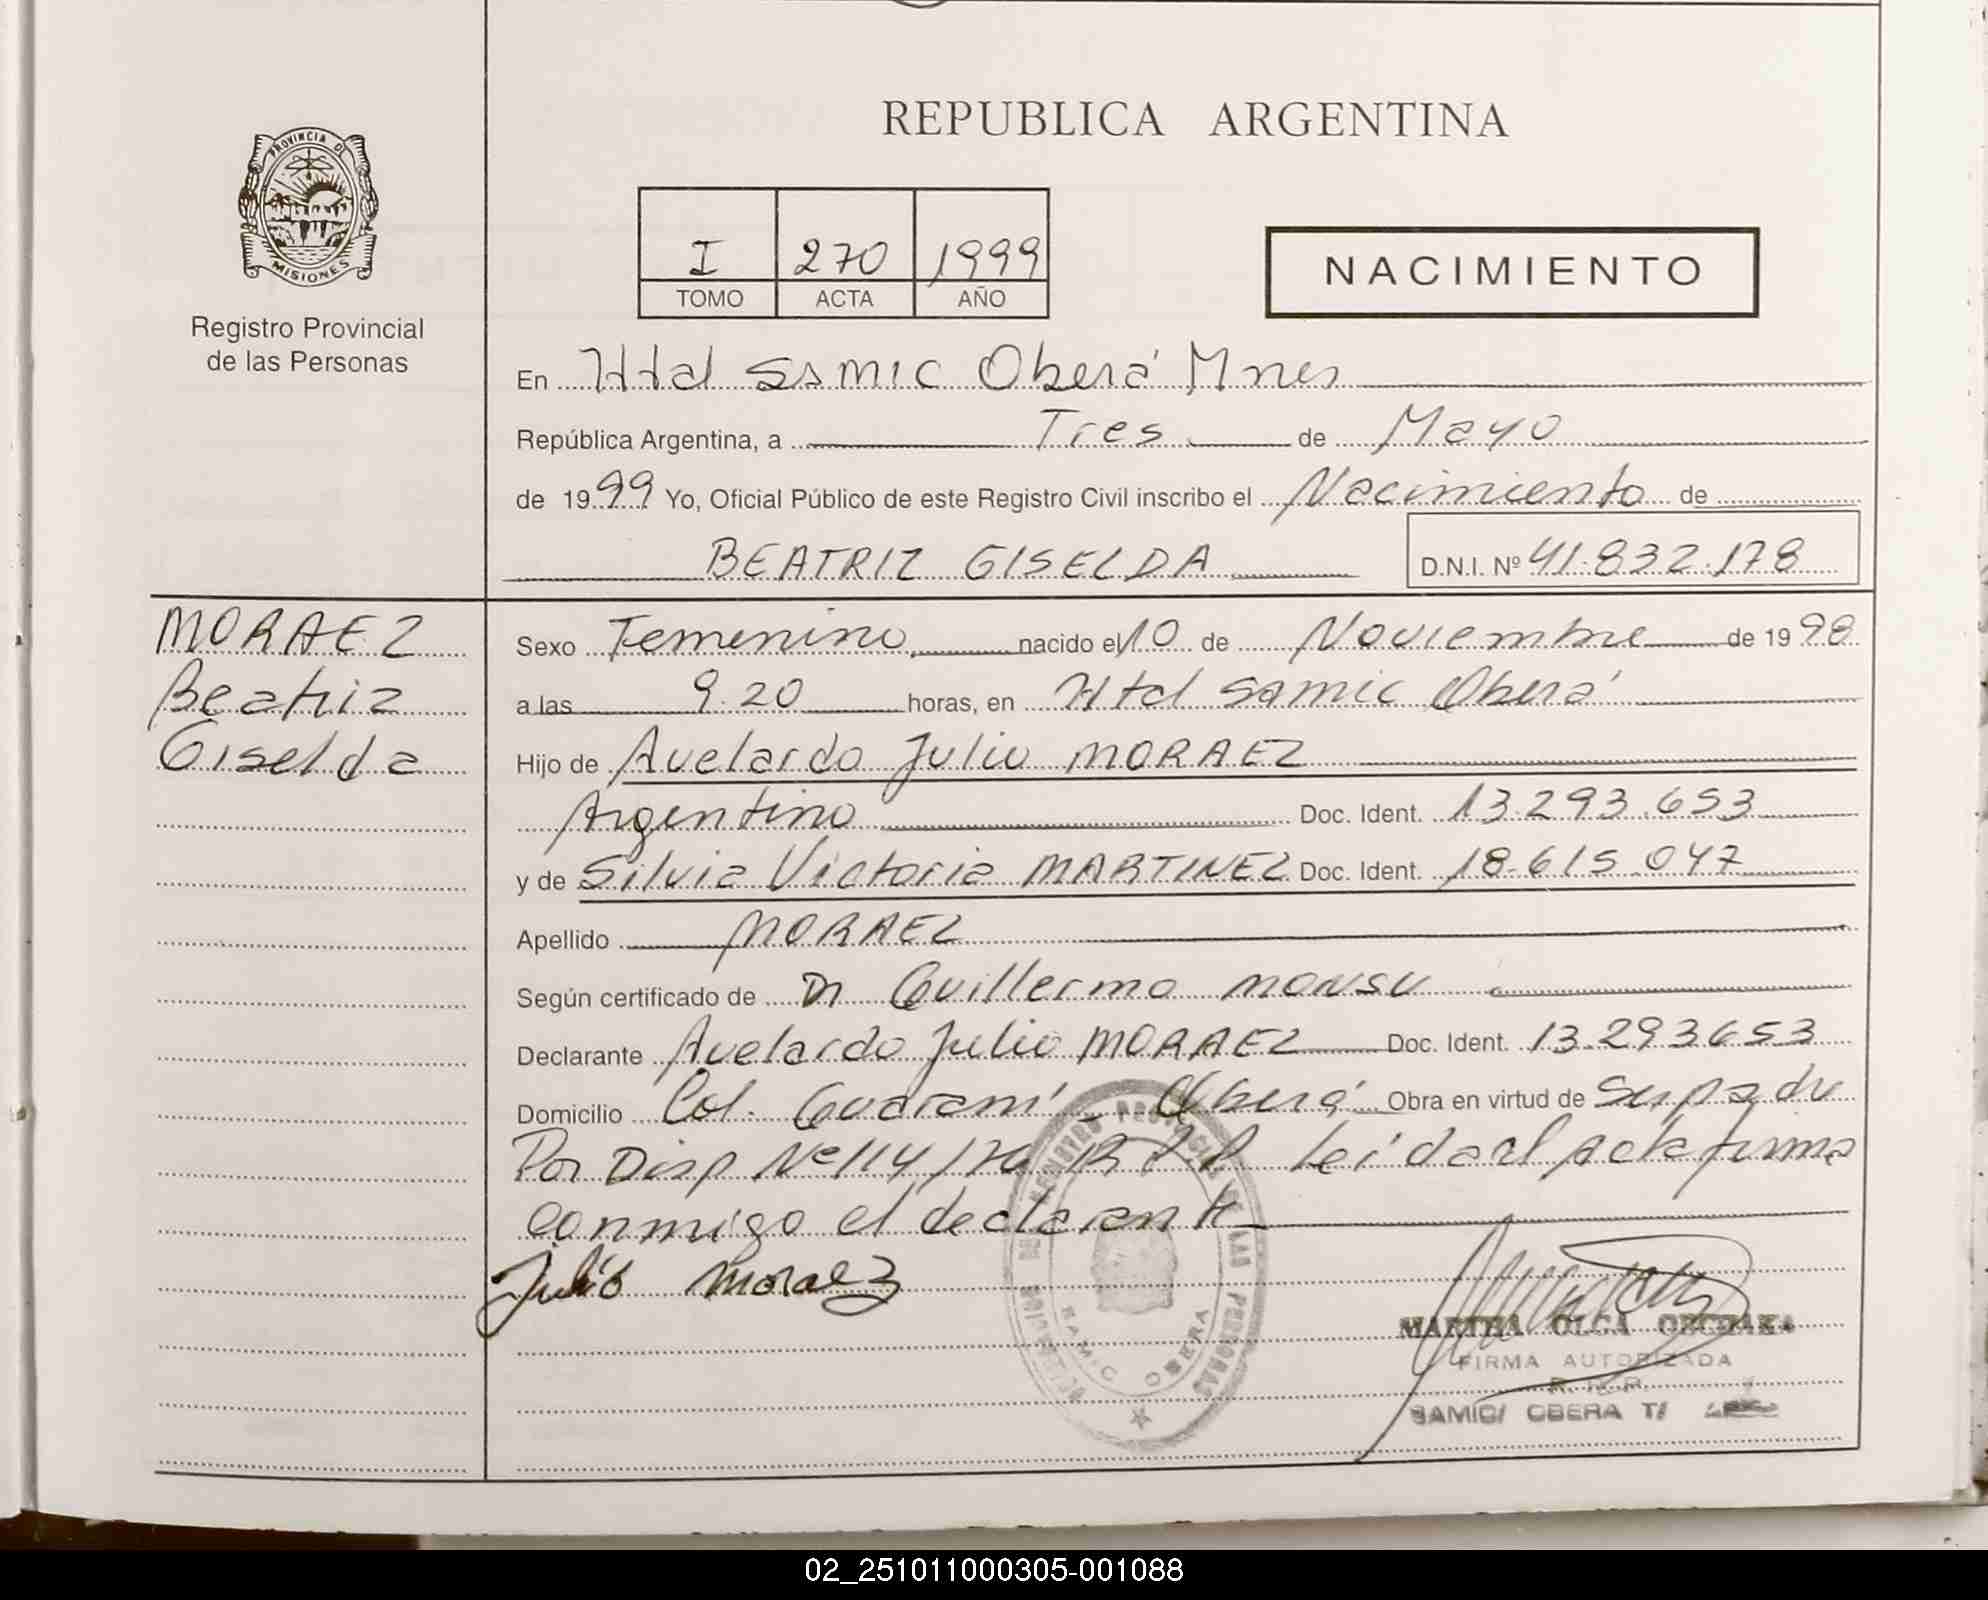 REPUBLICA ARGENTINA
PROVINCIA DE
MISIONES
Registro Provincial
de las Personas
I 270 1999
TOMO ACTA AÑO
NACIMIENTO
En Htal Samic Oberá Mnes
República Argentina, a Tres de Mayo
de 1999 Yo, Oficial Público de este Registro Civil inscribo el Nacimiento de
BEATRIZ GISELDA D.N.I. Nº 41.832.178
MORAEZ
Beatriz
Giselda
Sexo Femenino nacido el 10 de Noviembre de 1998
a las 9.20 horas, en Htal Samic Oberá
Hijo de Avelardo Julio MORAEZ
Argentino Doc. Ident. 13.293.653
y de Silvia Victoria MARTINEZ Doc. Ident. 18.615.047
Apellido MORAEZ
Según certificado de Dr Guillermo MONSU
Declarante Avelardo Julio MORAEZ Doc. Ident. 13.293653
Domicilio Col. Guaraní - Oberá Obra en virtud de su padre
Por Disp Nº 114/ R.P.P. Leída el acta firma
conmigo el declarante
Julio moraez
REGISTRO PROVINCIAL DE LAS PERSONAS
SAMIC OBERA
MARTHA OLGA
FIRMA AUTORIZADA
R.P.P.
SAMIC/ OBERA
02_251011000305-001088